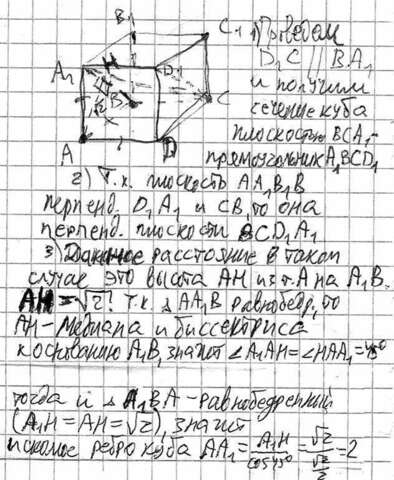 B₁
C₁
A₁
H
D₁
B
C
A
D
1) Проведем
D₁C // BA₁
и получим
сечение куба
плоскостью BCA₁-
прямоугольник A₁BCD₁
2) Т.к. плоскость AA₁B₁B
перпенд. D₁A₁ и CB, то она
перпенд. плоскости BCD₁A₁
3) Данное расстояние в таком
случае это высота AH из т.A на A₁B.
AH = √2! Т.к. ∆ AA₁B равнобедр, то
AH - медиана и биссектриса
к основанию A₁B, значит ∠A₁AH = ∠HAA₁ = 45⁰
тогда и ∆ A₁BA - равнобедренный
(A₁H = AH = √2), значит
искомое ребро куба AA₁ = A₁H / cos45⁰ = √2 / (√2/2) = 2